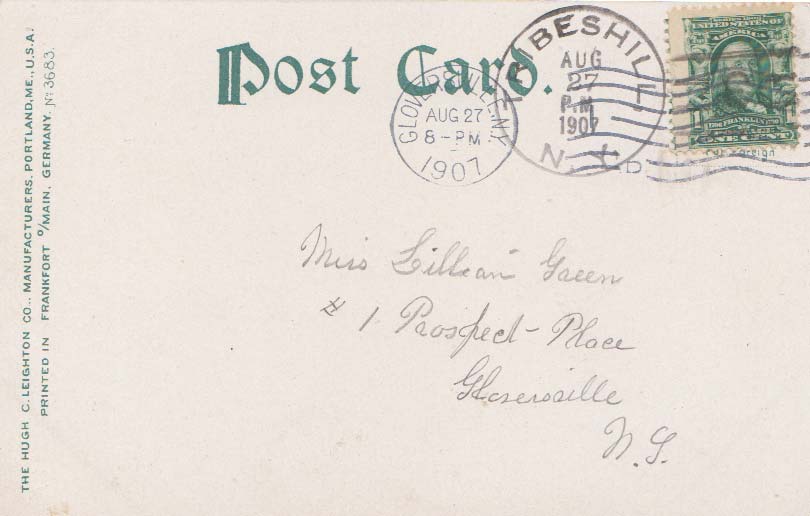 Post Card.
GLOVERSVILLE, N.Y.
AUG 27
8-PM
1907
TRIBESHILL
AUG
27
P.M
1907
N.Y.
SERIES 1902
UNITED STATES OF
AMERICA
1706 FRANKLIN 1790
POSTAGE
ONE CENT
Foreign
Miss Lillian Green
# 1 Prospect Place
Gloversville
N.Y.
THE HUGH C. LEIGHTON CO., MANUFACTURERS, PORTLAND, ME., U.S.A.
PRINTED IN FRANKFORT O/MAIN, GERMANY. No 3683.